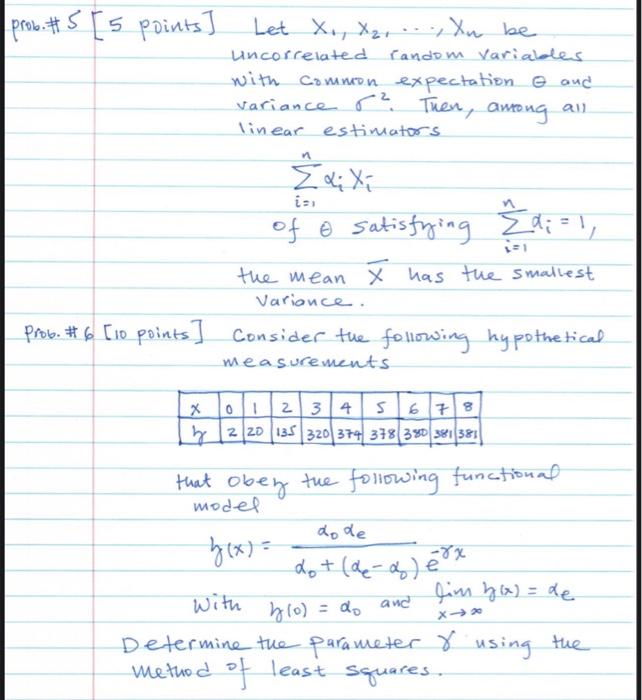 prob. # 5 [5 points] Let X₁, X₂, ···, Xn be
uncorrelated random variables
with common expectation θ and
variance σ². Then, among all
linear estimators
n
∑ αi Xi
i=1
of θ satisfying ∑_{i=1}^{n} αi = 1,
the mean X̄ has the smallest
variance.
Prob. # 6 [10 points] Consider the following hypothetical
measurements
x 0 1 2 3 4 5 6 7 8
y 2 20 135 320 374 378 380 381 381
that obey the following functional
model
y(x) = α₀αe / (α₀ + (αe - α₀) e^{-γx})
with y(0) = α₀ and lim_{x→∞} y(x) = αe
Determine the parameter γ using the
method of least squares.